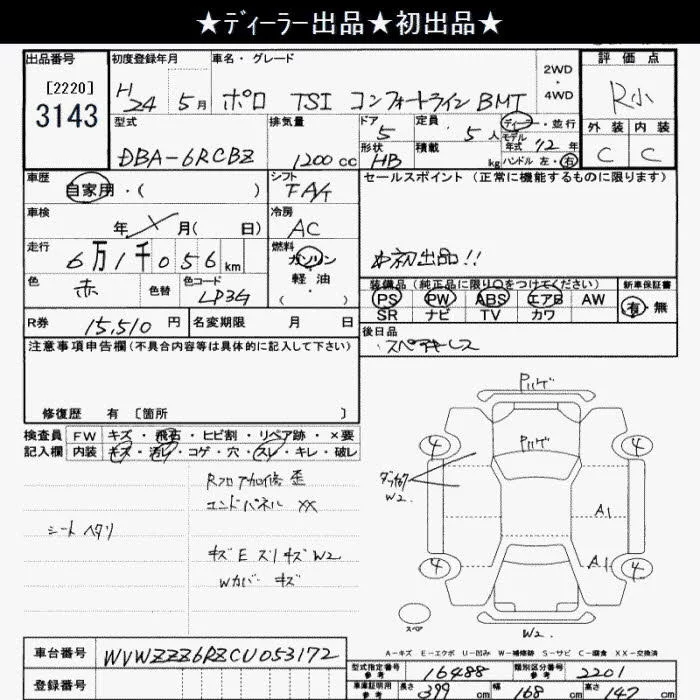 ★ディーラー出品★初出品★
出品番号 初度登録年月 車名・グレード 2WD・4WD 評価点
[2220]
3143
H24 5月 ポロ TSI コンフォートライン BMT R小
型式 排気量 ドア 定員 ディーラー・並行 外装 内装
DBA-6RCBZ 1200cc 5 5人 モデル年式 12年 C C
形状 HB 積載 kg ハンドル 左・右
車歴 シフト セールスポイント (正常に機能するものに限ります)
自家用・( ) FAT
車検 冷房
年 月( 日) AC
走行 燃料
6万1千056km ガソリン 初出品!!
軽油
・( )
色 色替 色コード 装備品(純正品に限り○をつけてください) 新車保証書
赤 LP3G PS PW ABS エアB AW 有・無
SR ナビ TV カワ
R券 15,510円 名変期限 月 日 後日品
スペアキーレス
注意事項申告欄(不具合内容等は具体的に記入して下さい)
修復歴 有 [箇所 ]
検査員 FW キズ・飛石・ヒビ割・リペア跡・×要
記入欄 内装 キズ・汚レ・コゲ・穴・スレ・キレ・破レ
Rフロア加修 歪
エンドパネル XX
シート ヘタリ
キズ E ズリキズ W2
Wカバー キズ
Pハゲ
Pハゲ
4 4
W2
A1
A1
4 4
スペア
W2
A-キズ E-エクボ U-凹み W-補修跡 S-サビ C-腐食 XX-交換済
車台番号 WVWZZZ6RZCU053172
登録番号
型式指定番号 参考 16488 類別区分番号 参考 2201
車庫証明用 参考 長さ 399cm 幅 168cm 高さ 147cm